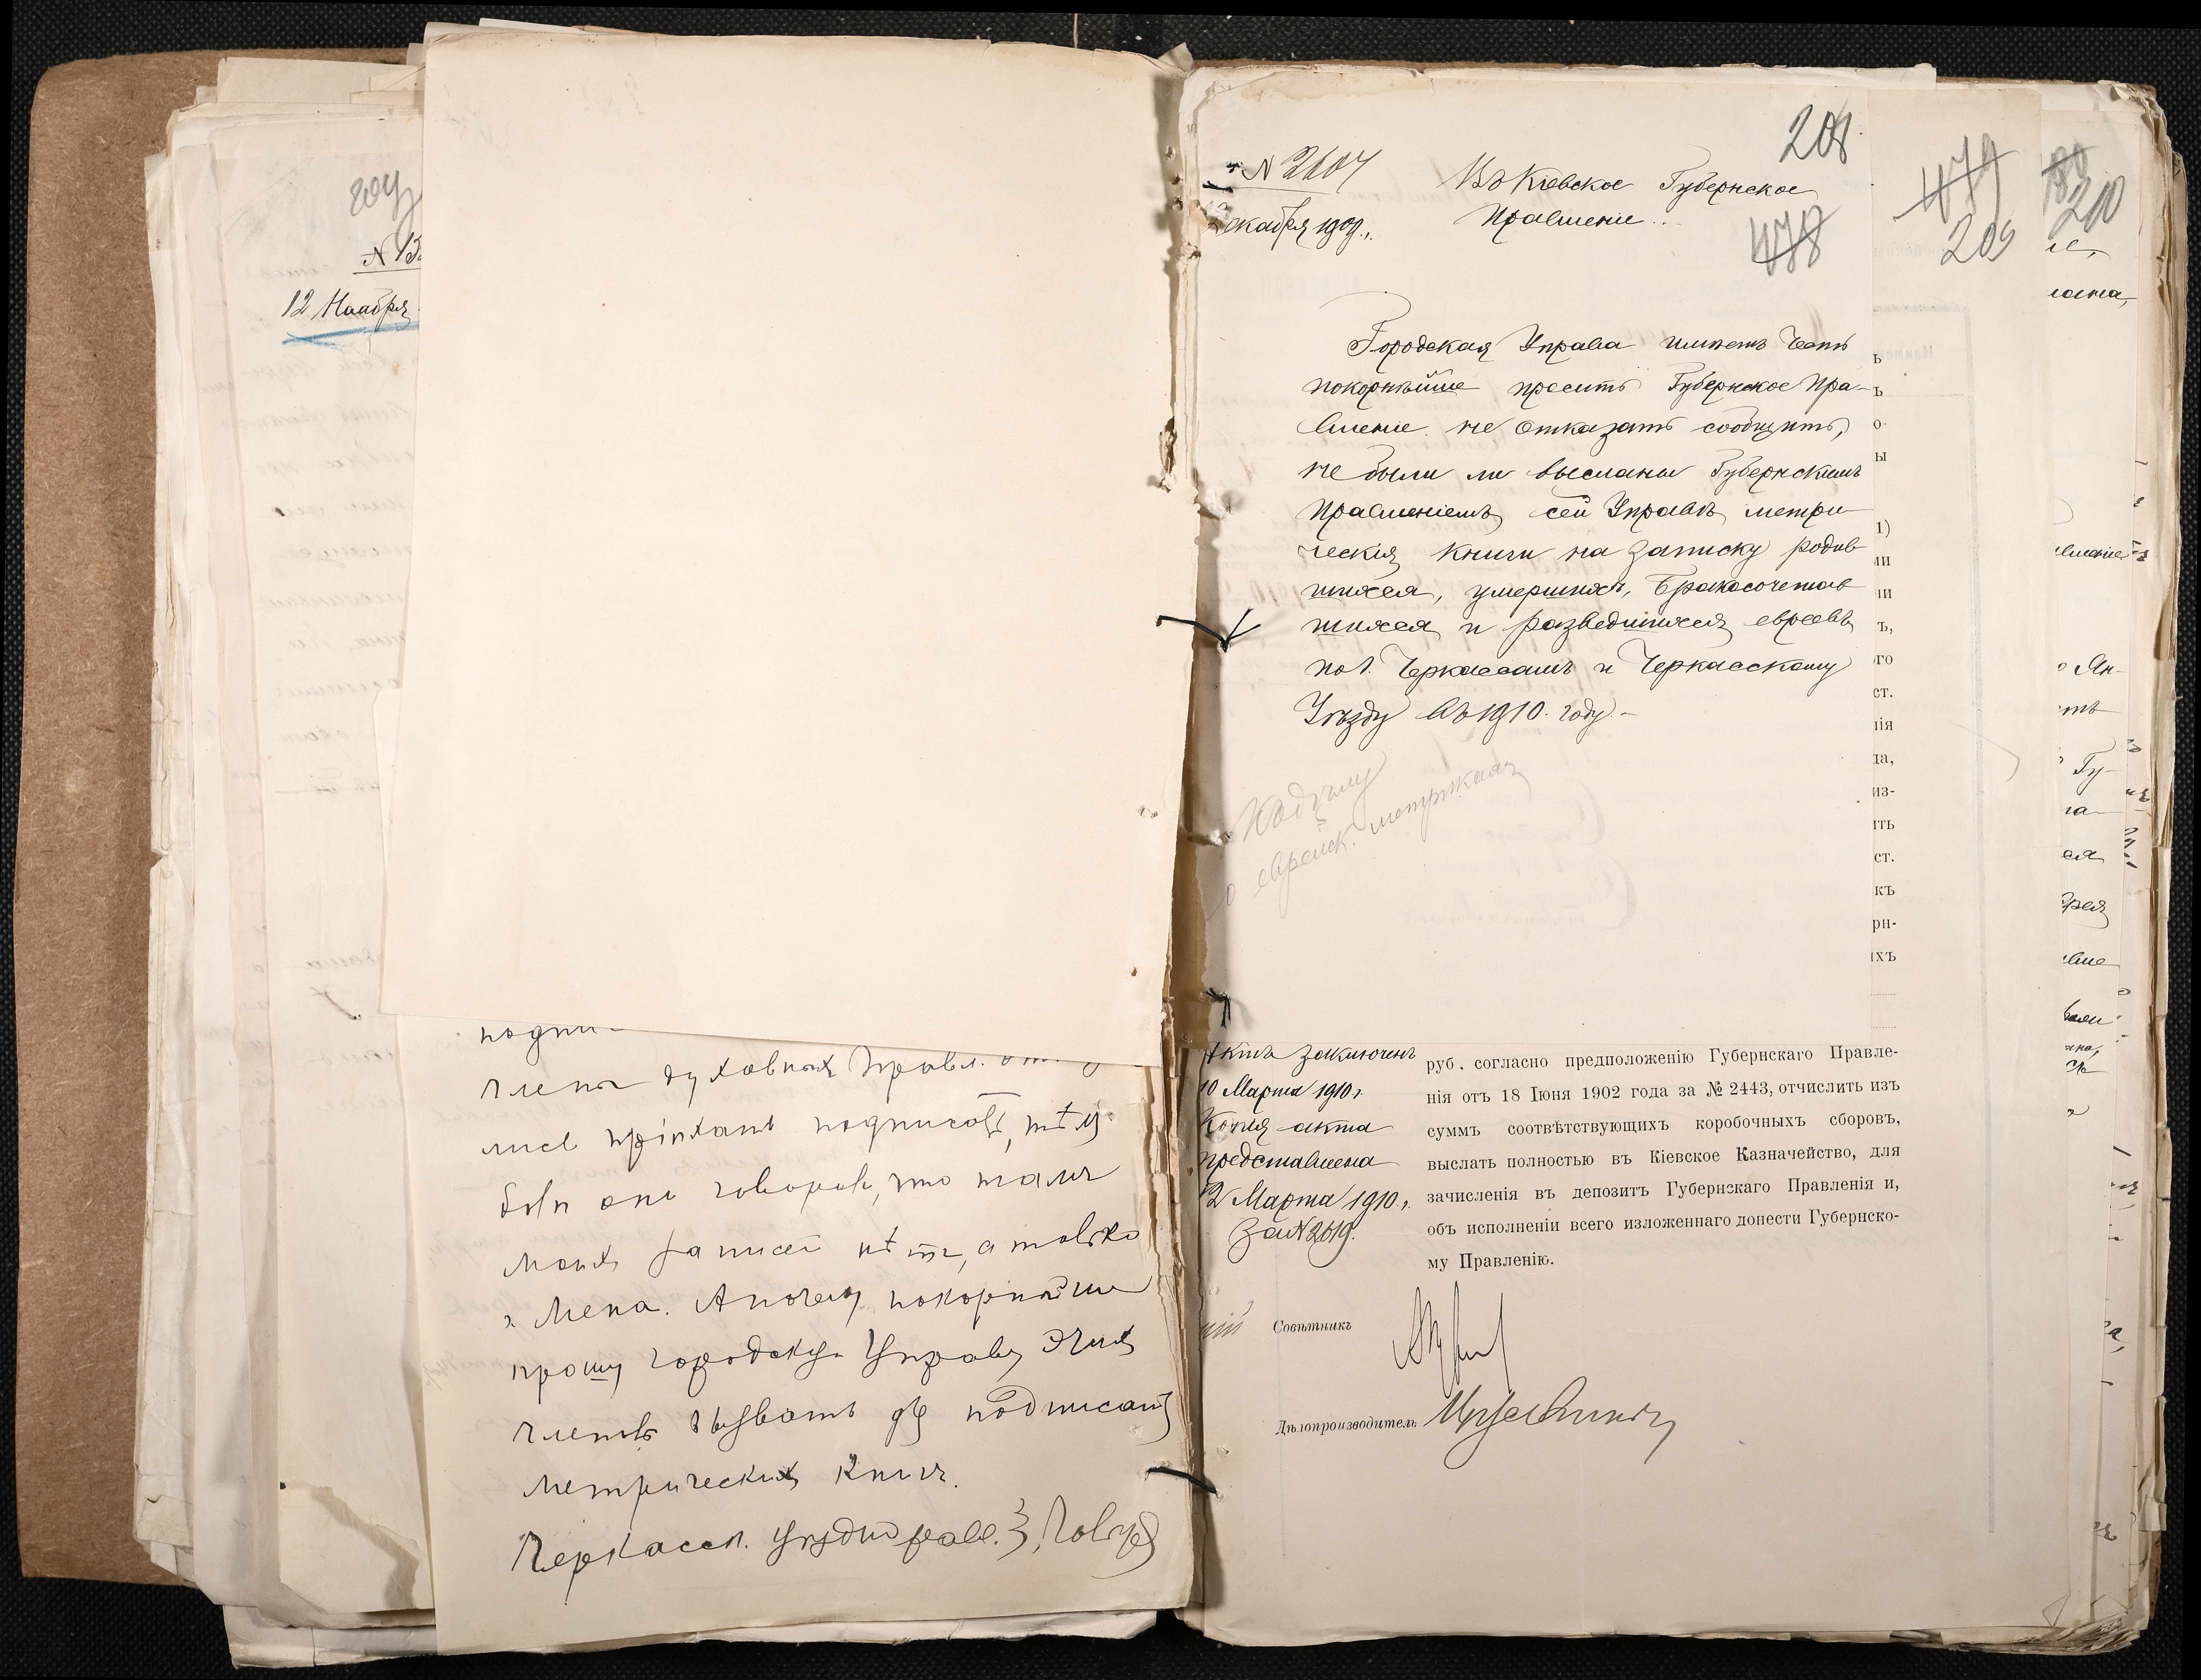 204
N 15
12 Ноября
члены духовных Правл.
лись пріѣхать подписать, тѣмъ
болѣе они говорятъ, что тамъ
моихъ записей нѣтъ, а только
А потому покорнѣйше
прошу Городскую Управу этихъ
членовъ вызвать для подписанія
метрическихъ книгъ.
208
N 2604
Декабря 1909 г.
Въ Кіевское Губернское
Правленіе.
478
Городская Управа имѣетъ честь
покорнѣйше просить Губернское Пра-
вленіе не отказать сообщить,
не были ли высланы Губернскимъ
Правленіемъ сей Управѣ метри
ческія книги на записку родив
шихся, умершихъ, бракосочетав
шихся и разведшихся евреевъ
по г. Черкассамъ и Черкасскому
Уѣзду въ 1910 году.-
о еврейск. метрикахъ
Актъ заключенъ
10 Марта 1910 г.
Копія акта
представлена
12 Марта 1910 г.
за N 2619.
руб. согласно предположенію Губернскаго Правле-
нія отъ 18 Іюня 1902 года за № 2443, отчислить изъ
суммъ соотвѣтствующихъ коробочныхъ сборовъ,
выслать полностью въ Кіевское Казначейство, для
зачисленія въ депозитъ Губернскаго Правленія и,
объ исполненіи всего изложеннаго донести Губернско-
му Правленію.
Совѣтникъ
Дѣлопроизводитель
479
209
180
210